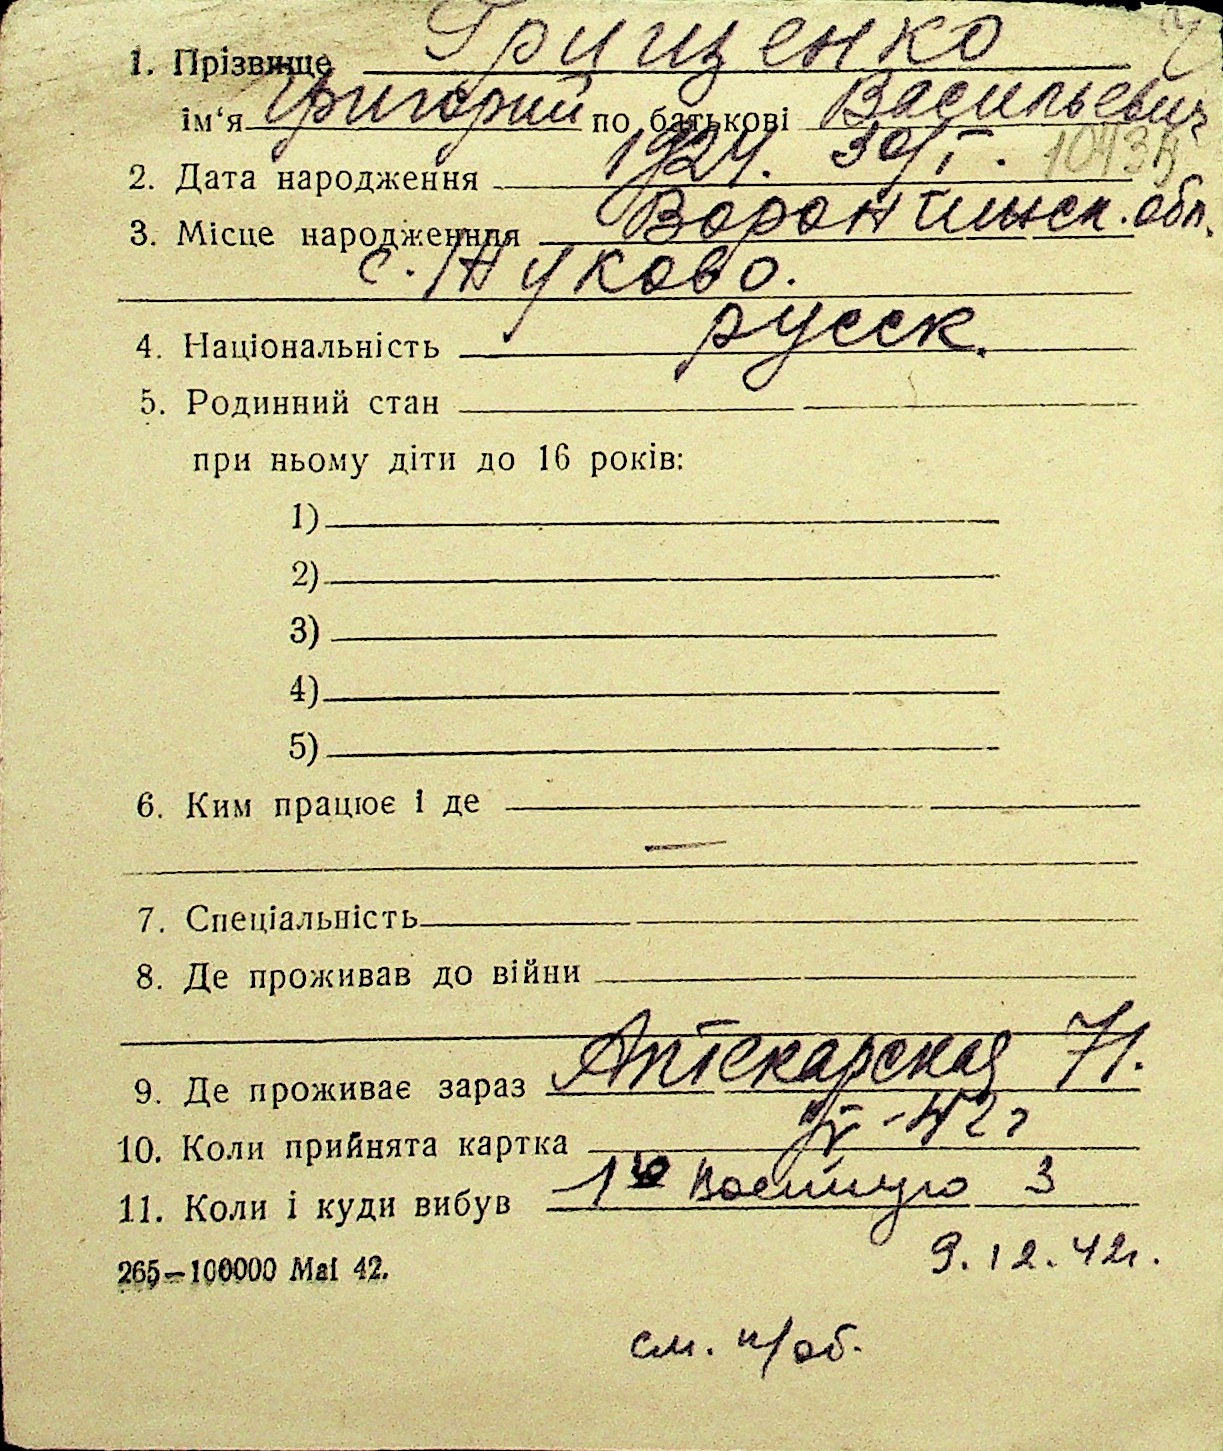 1. Прізвище Грищенко
ім‘я Григорий по батькові Васильевич
2. Дата народження 1924. 30/I.
3. Місце народженння обл.
с. Жуково.
4. Національність русск.
5. Родинний стан
при ньому діти до 16 років:
1)
2)
3)
4)
5)
6. Ким працює і де
—
7. Спеціальність
8. Де проживав до війни
9. Де проживає зараз Аптекарская 71.
10. Коли прийнята картка 42 г
11. Коли і куди вибув 1ую Военную 3
9.12.42г.
265—100000 Mai 42.
см. н/об.